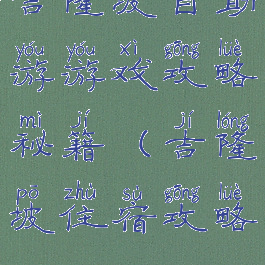 吉隆坡自助
yóu yóu xì gōng lüè
游游戏攻略
mì jí jí lóng
秘籍（吉隆
pō zhù sù gōng lüè
坡住宿攻略